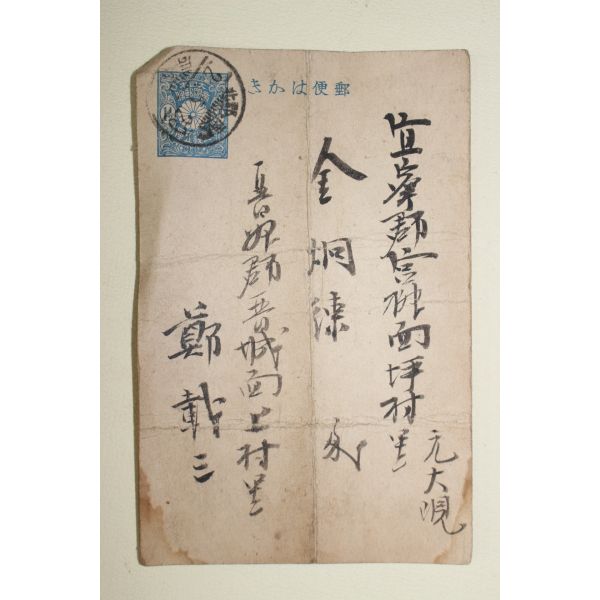 郵便はかき
宜寧郡宮柳面坪村里
元大峴
金炯鍊
晋州郡晋城面上村里
鄭載三